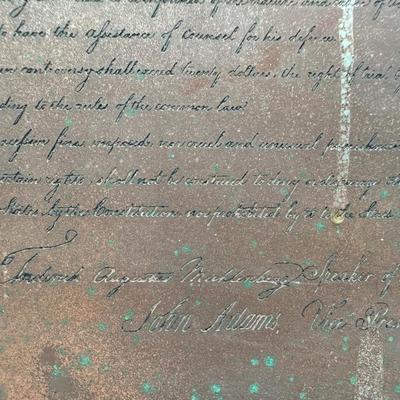 to have the assistance of counsel for his defence
controversy shall exceed twenty dollars, the right of trial by
ding to the rules of the common law
cessive fines imposed, nor cruel and unusual punishmen
certain rights, shall not be construed to deny or disparage
States by the Constitution, nor prohibited by it to the States
Frederick Augustus Muhlenberg Speaker of
John Adams, Vice Pres